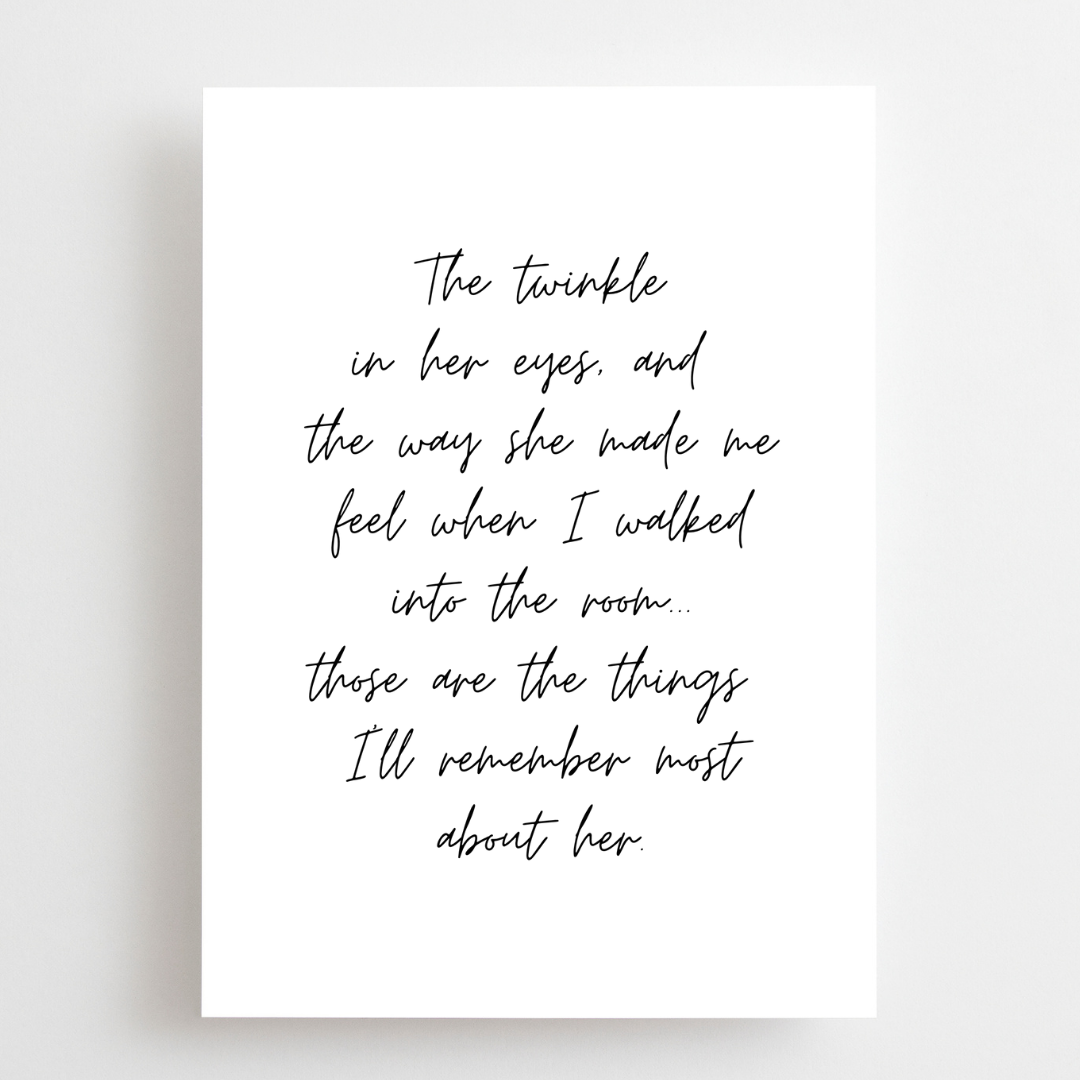 The twinkle
in her eyes, and
the way she made me
feel when I walked
into the room...
those are the things
I'll remember most
about her.